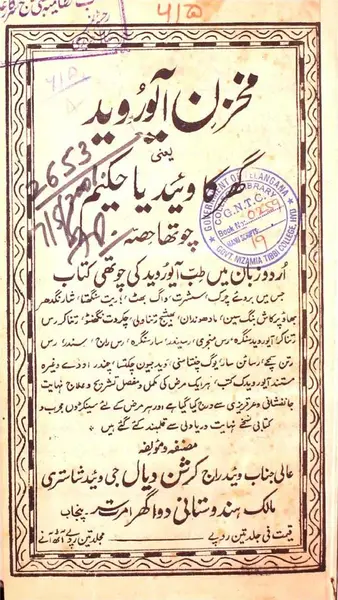 ۵۱۵
مخزن آیوروید
یعنی
گھر کا وئید یا حکیم
چوتھا حصہ
GOVERNMENT OF TELANGANA
LIBRARY
G.N.T.C.
Book No: 0259
MANUSCRIPTS
19
GOVT. NIZAMIA TIBBI COLLEGE, HYD
2653
اردو زبان میں طب آیوروید کی چوتھی کتاب
جس میں بروئے چرک سشرت واگ بھٹ ہاریت سنگتا، شارنگدھر
بھاؤ پرکاش بنگ سین، مادھوندان، بھیشج رتناولی، چکردت نگھنٹو، رتناکر رس
رتناکر آیوروید سنگرہ، رس منجری، رسیندر سارسنگرہ، رس راج سندر، رس
رتن سمچے، رسائن سار، یوگ چنتامنی، وید جیون چکتسا، چندر اودے وغیرہ
مستند آیورویدک کتب، ہر ایک مرض کی مکمل و مفصل تشریح و علاج نہایت
جانفشانی و عرقریزی سے درج کیا گیا ہے اور ہر مرض کے لئے سینکڑوں مجرب و
کتابی نسخے نہایت دریا دلی سے قلمبند کئے گئے ہیں
مصنفہ و مؤلفہ
عالی جناب وئید راج کرشن دیال جی وئید شاستری
مالک ہندوستانی دواگھر امرتسر۔ پنجاب
قیمت فی جلد تین روپے مجلد تین روپے آٹھ آنے